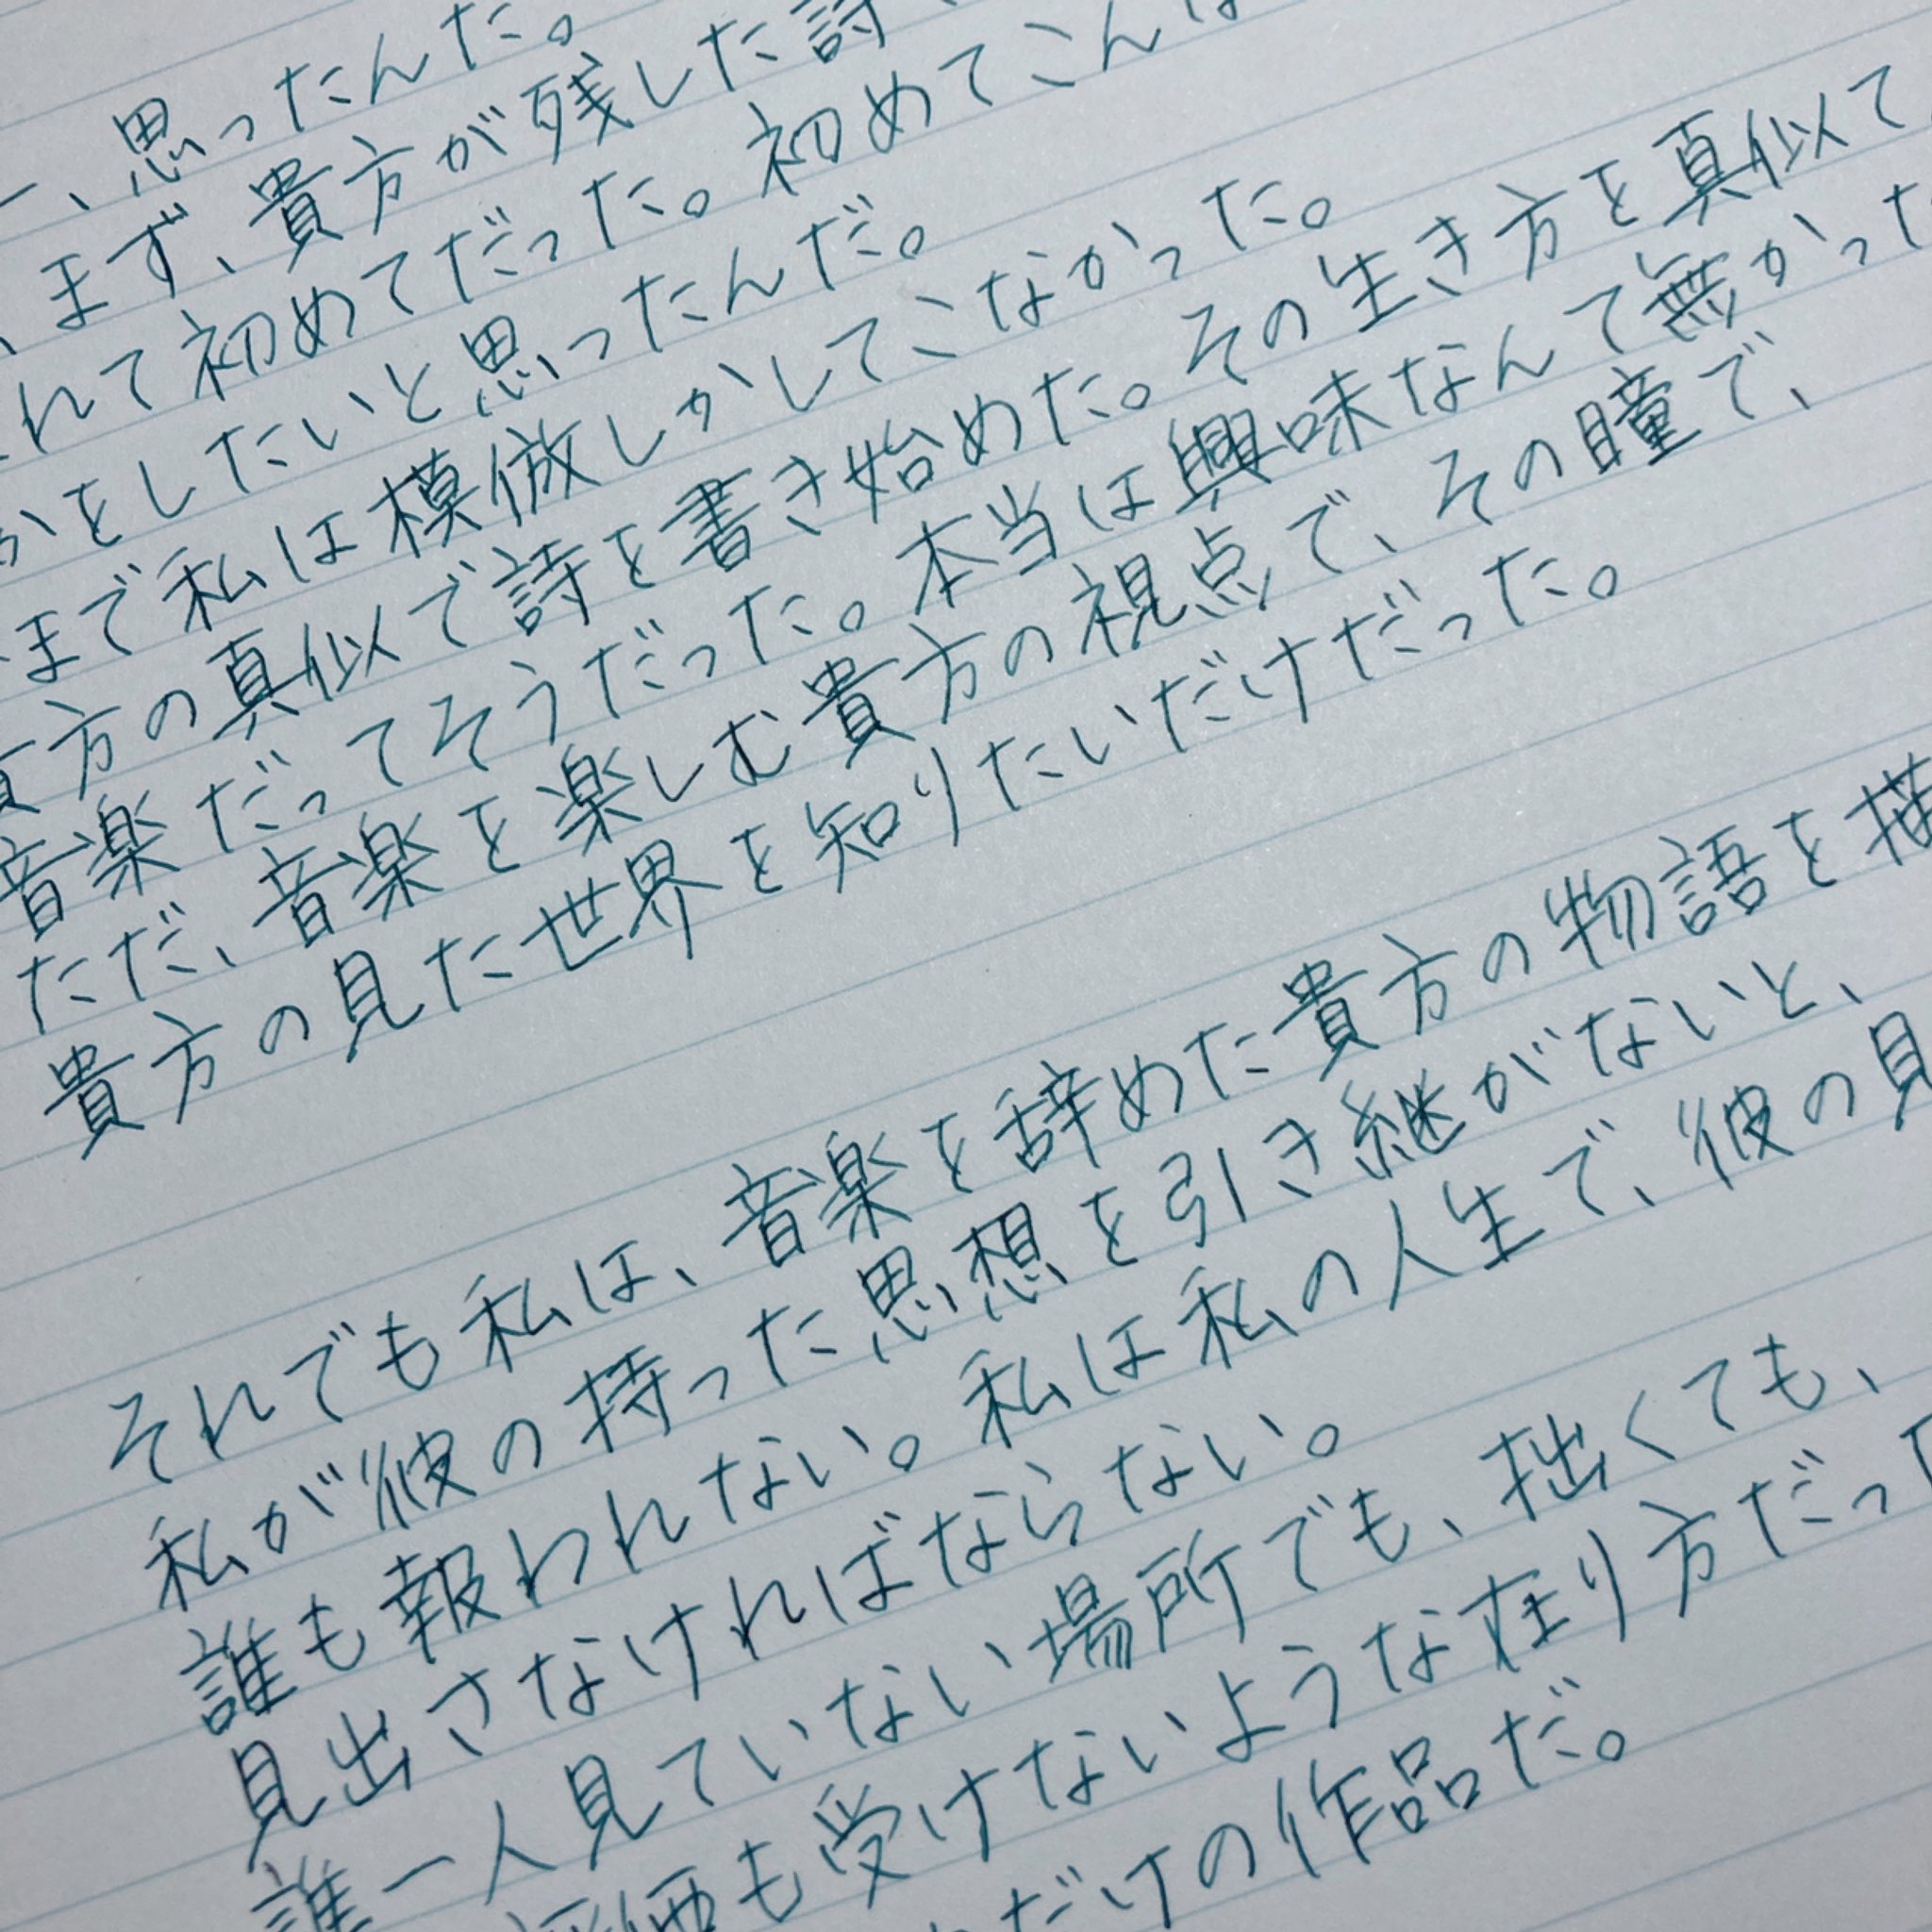 、思ったんだ。
まず、貴方が残した詩
れて初めてだった。初めてこん
をしたいと思ったんだ。
まで私は模倣しかしてこなかった。
方の真似で詩を書き始めた。その生き方を真似て
音楽だってそうだった。本当は興味なんて無かった
ただ、音楽を楽しむ貴方の視点で、その瞳で、
貴方の見た世界を知りたいだけだった。
それでも私は、音楽を辞めた貴方の物語を描
私が彼の持った思想を引き継がないと、
誰も報われない。私は私の人生で、彼の見
見出さなければならない。
誰一人見ていない場所でも、拙くても、
評価も受けないような在り方だっ
だけの作品だ。